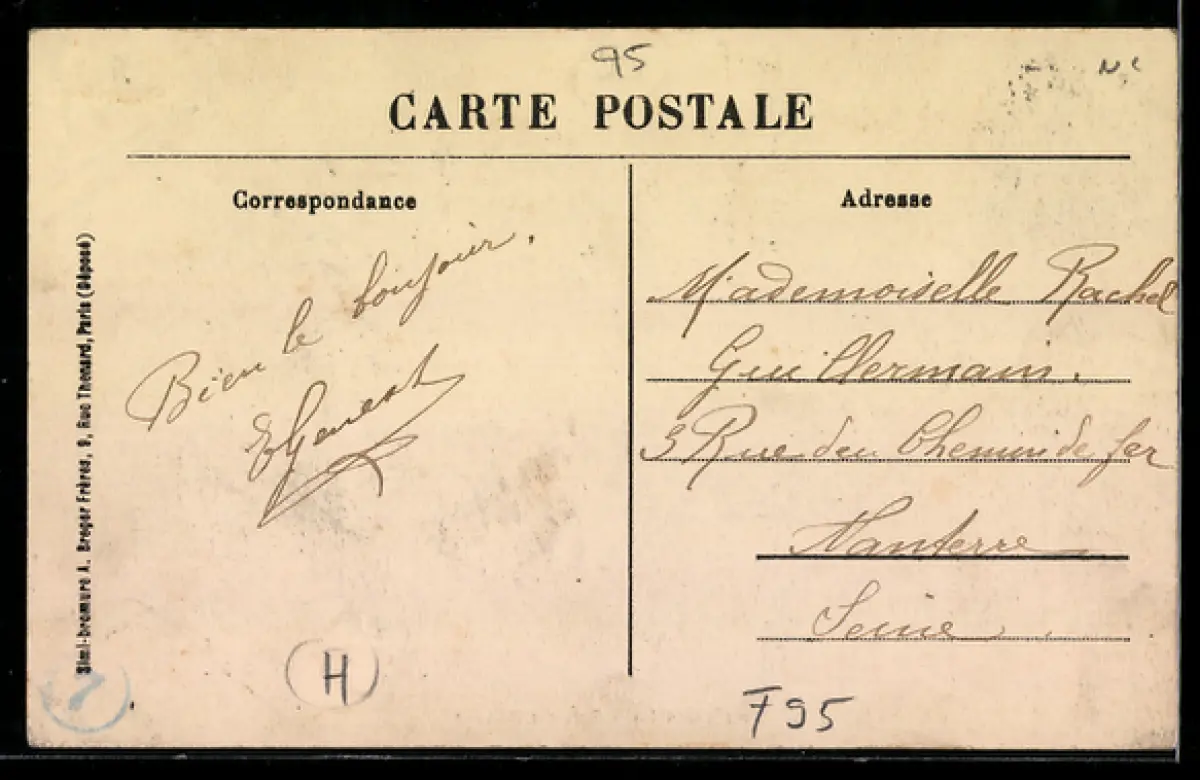 95
CARTE POSTALE
Correspondance
Adresse
Bien le bonjour.
Mademoiselle Rachel
Guillermain.
3 Rue du Chemin de fer
Nanterre
Seine.
Simi-bromure A. Breger Frères, 9, Rue Thenard, Paris (Déposé)
H
F95